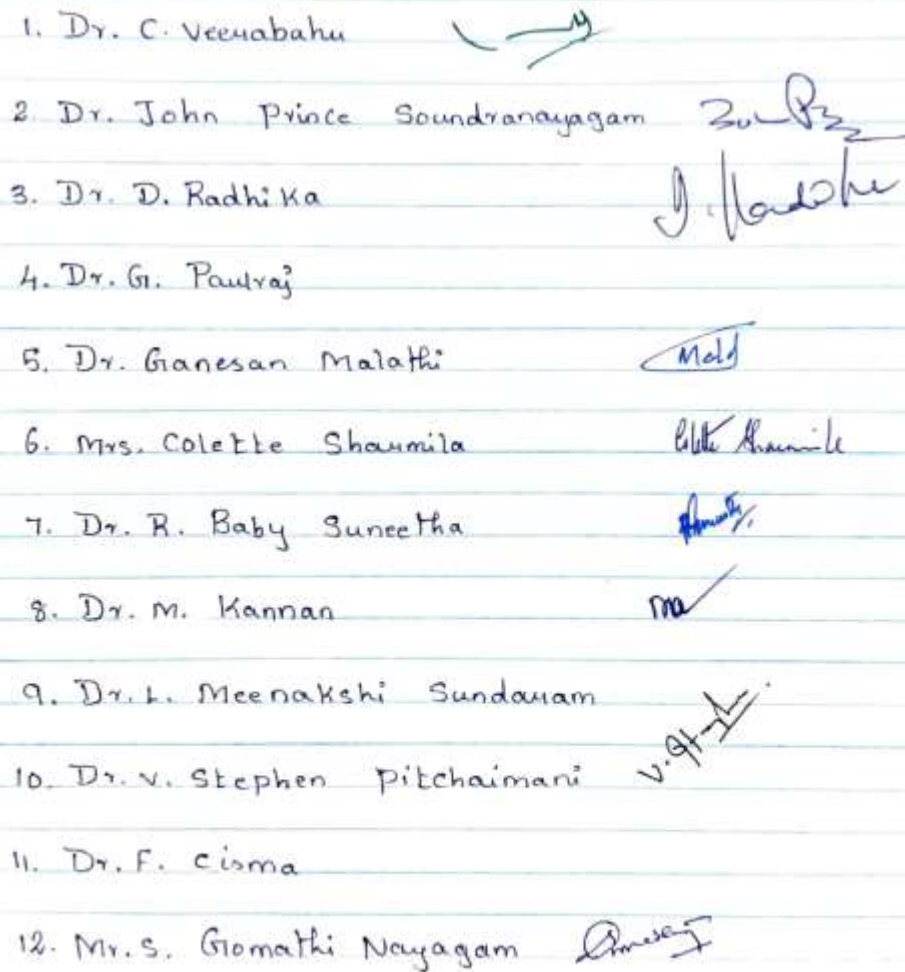 1. Dr. C. Veerabahu
2 Dr. John Prince Soundranayagam
3. Dr. D. Radhika
4. Dr. G. Paulraj
5. Dr. Ganesan Malathi
6. Mrs. Colette Sharmila
7. Dr. R. Baby Suneetha
8. Dr. M. Kannan
9. Dr. L. Meenakshi Sundaram
10. Dr. V. Stephen Pitchaimani
11. Dr. F. Cisma
12. Mr. S. Gomathi Nayagam